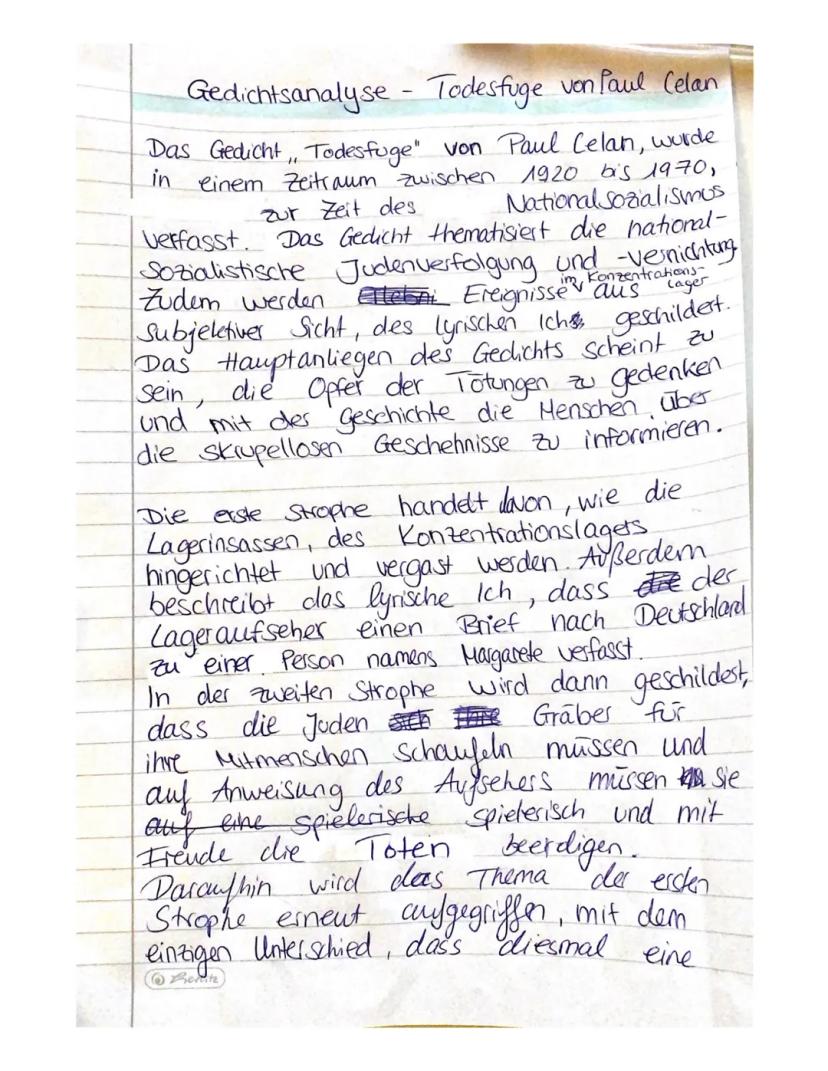 Gedichtsanalyse - Todesfuge von Paul Celan
Das Gedicht „Todesfuge" von Paul Celan, wurde
in einem Zeitraum zwischen 1920 bis 1970,
zur Zeit des Nationalsozialismus
verfasst. Das Gedicht thematisiert die national-
sozialistische Judenverfolgung und -vernichtung.
Zudem werden Ereignisse im Konzentrations-lager aus
subjektiver Sicht, des lyrischen Ichs geschildert.
Das Hauptanliegen des Gedichts scheint zu
sein, die Opfer der Tötungen zu gedenken
und mit der Geschichte die Menschen über
die skrupellosen Geschehnisse zu informieren.
Die erste Strophe handelt davon, wie die
Lagerinsassen, des Konzentrationslagers
hingerichtet und vergast werden. Außerdem
beschreibt das lyrische Ich, dass der
Lageraufseher einen Brief nach Deutschland
zu einer Person namens Margarete verfasst.
In der zweiten Strophe wird dann geschildert,
dass die Juden Gräber für
ihre Mitmenschen schaufeln müssen und
auf Anweisung des Aufsehers müssen sie
auf eine spielerische spielerisch und mit
Freude die Toten beerdigen.
Daraufhin wird das Thema der ersten
Strophe erneut aufgegriffen, mit dem
einzigen Unterschied, dass diesmal eine